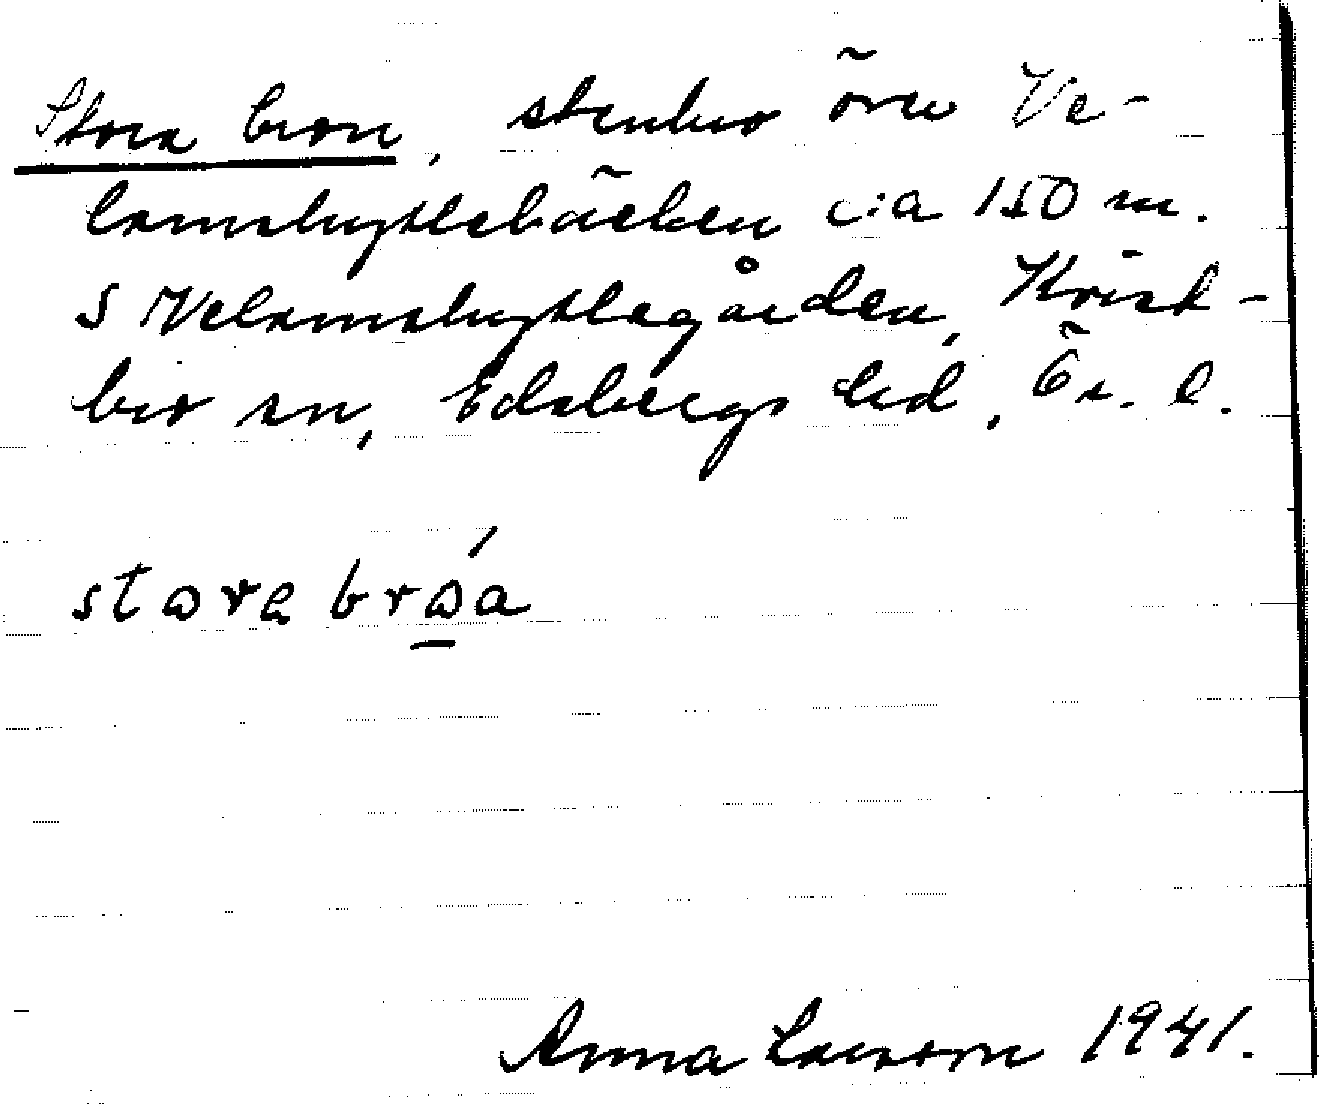 Stora bron, stenbro över Ve-
lamshyttebäcken c:a 150 m.
S Velamshyttegården, Kvist-
bro sn, Edsbergs hd, Ör. l.
stora bróa
Anna Larsson 1941.